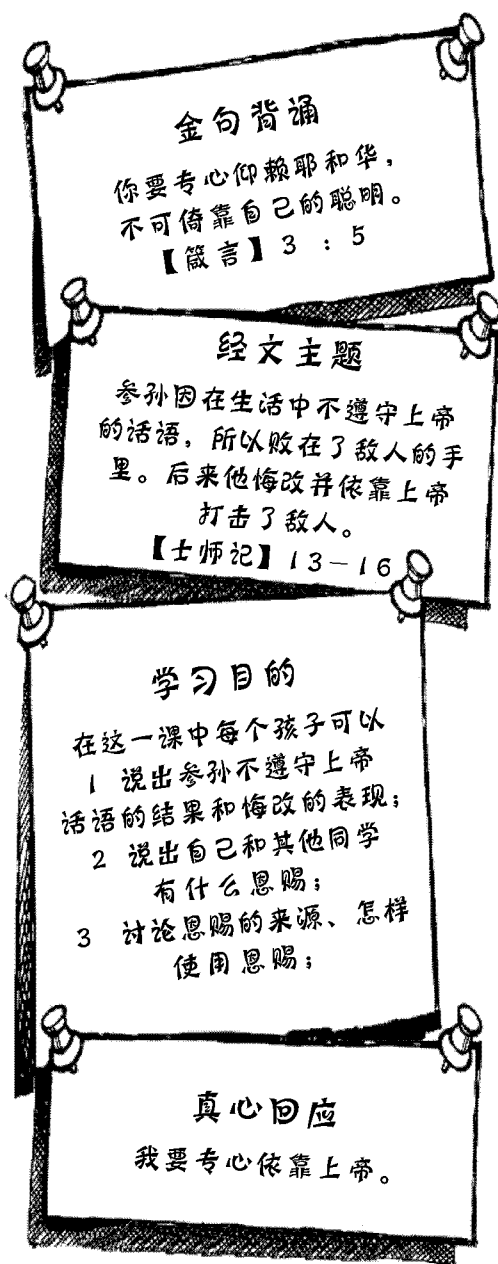 金句背诵
你要专心仰赖耶和华，
不可倚靠自己的聪明。
【箴言】3 : 5
经文主题
参孙因在生活中不遵守上帝
的话语，所以败在了敌人的手
里。后来他悔改并依靠上帝
打击了敌人。
【士师记】13－16
学习目的
在这一课中每个孩子可以
1 说出参孙不遵守上帝
话语的结果和悔改的表现；
2 说出自己和其他同学
有什么恩赐；
3 讨论恩赐的来源、怎样
使用恩赐；
真心回应
我要专心依靠上帝。